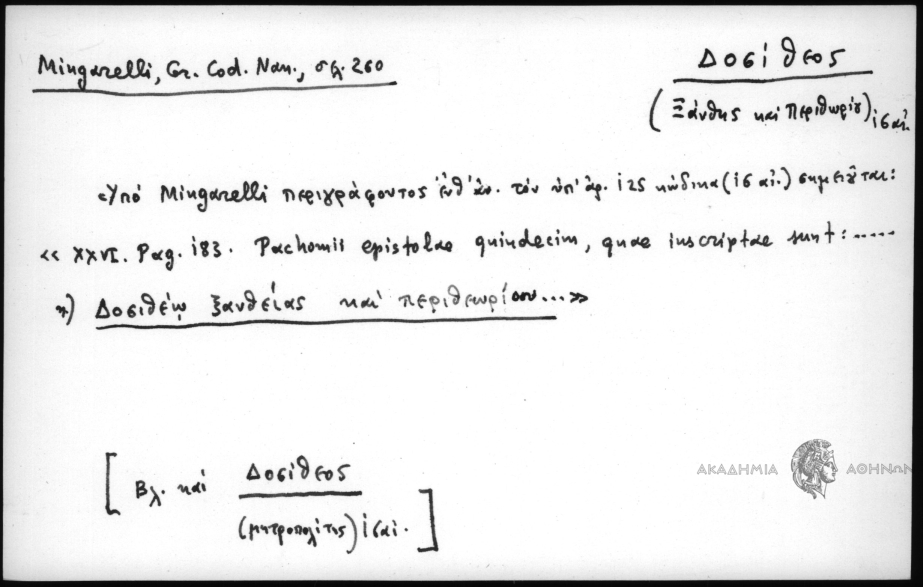 Mingarelli, Gr. Cod. Nan., σελ. 260
Δοσίθεος
(Ξάνθης καί Περιθωρίου) ις αἰ.
«Ὑπό Mingarelli περιγράφοντος ἐνθ' ἀν. τόν ὑπ' ἀρ. 125 κώδικα (ις αἰ.) σημειοῦται:
« XXVI. Pag. 183. Pachomii epistolae quindecim, quae inscriptae sunt: .....
η) Δοσιθέῳ ξανθείας καί περιθεωρίου...»
[Βλ. καί Δοσίθεος
(μητροπολίτης) ις αἰ.]
ΑΚΑΔΗΜΙΑ ΑΘΗΝΩΝ